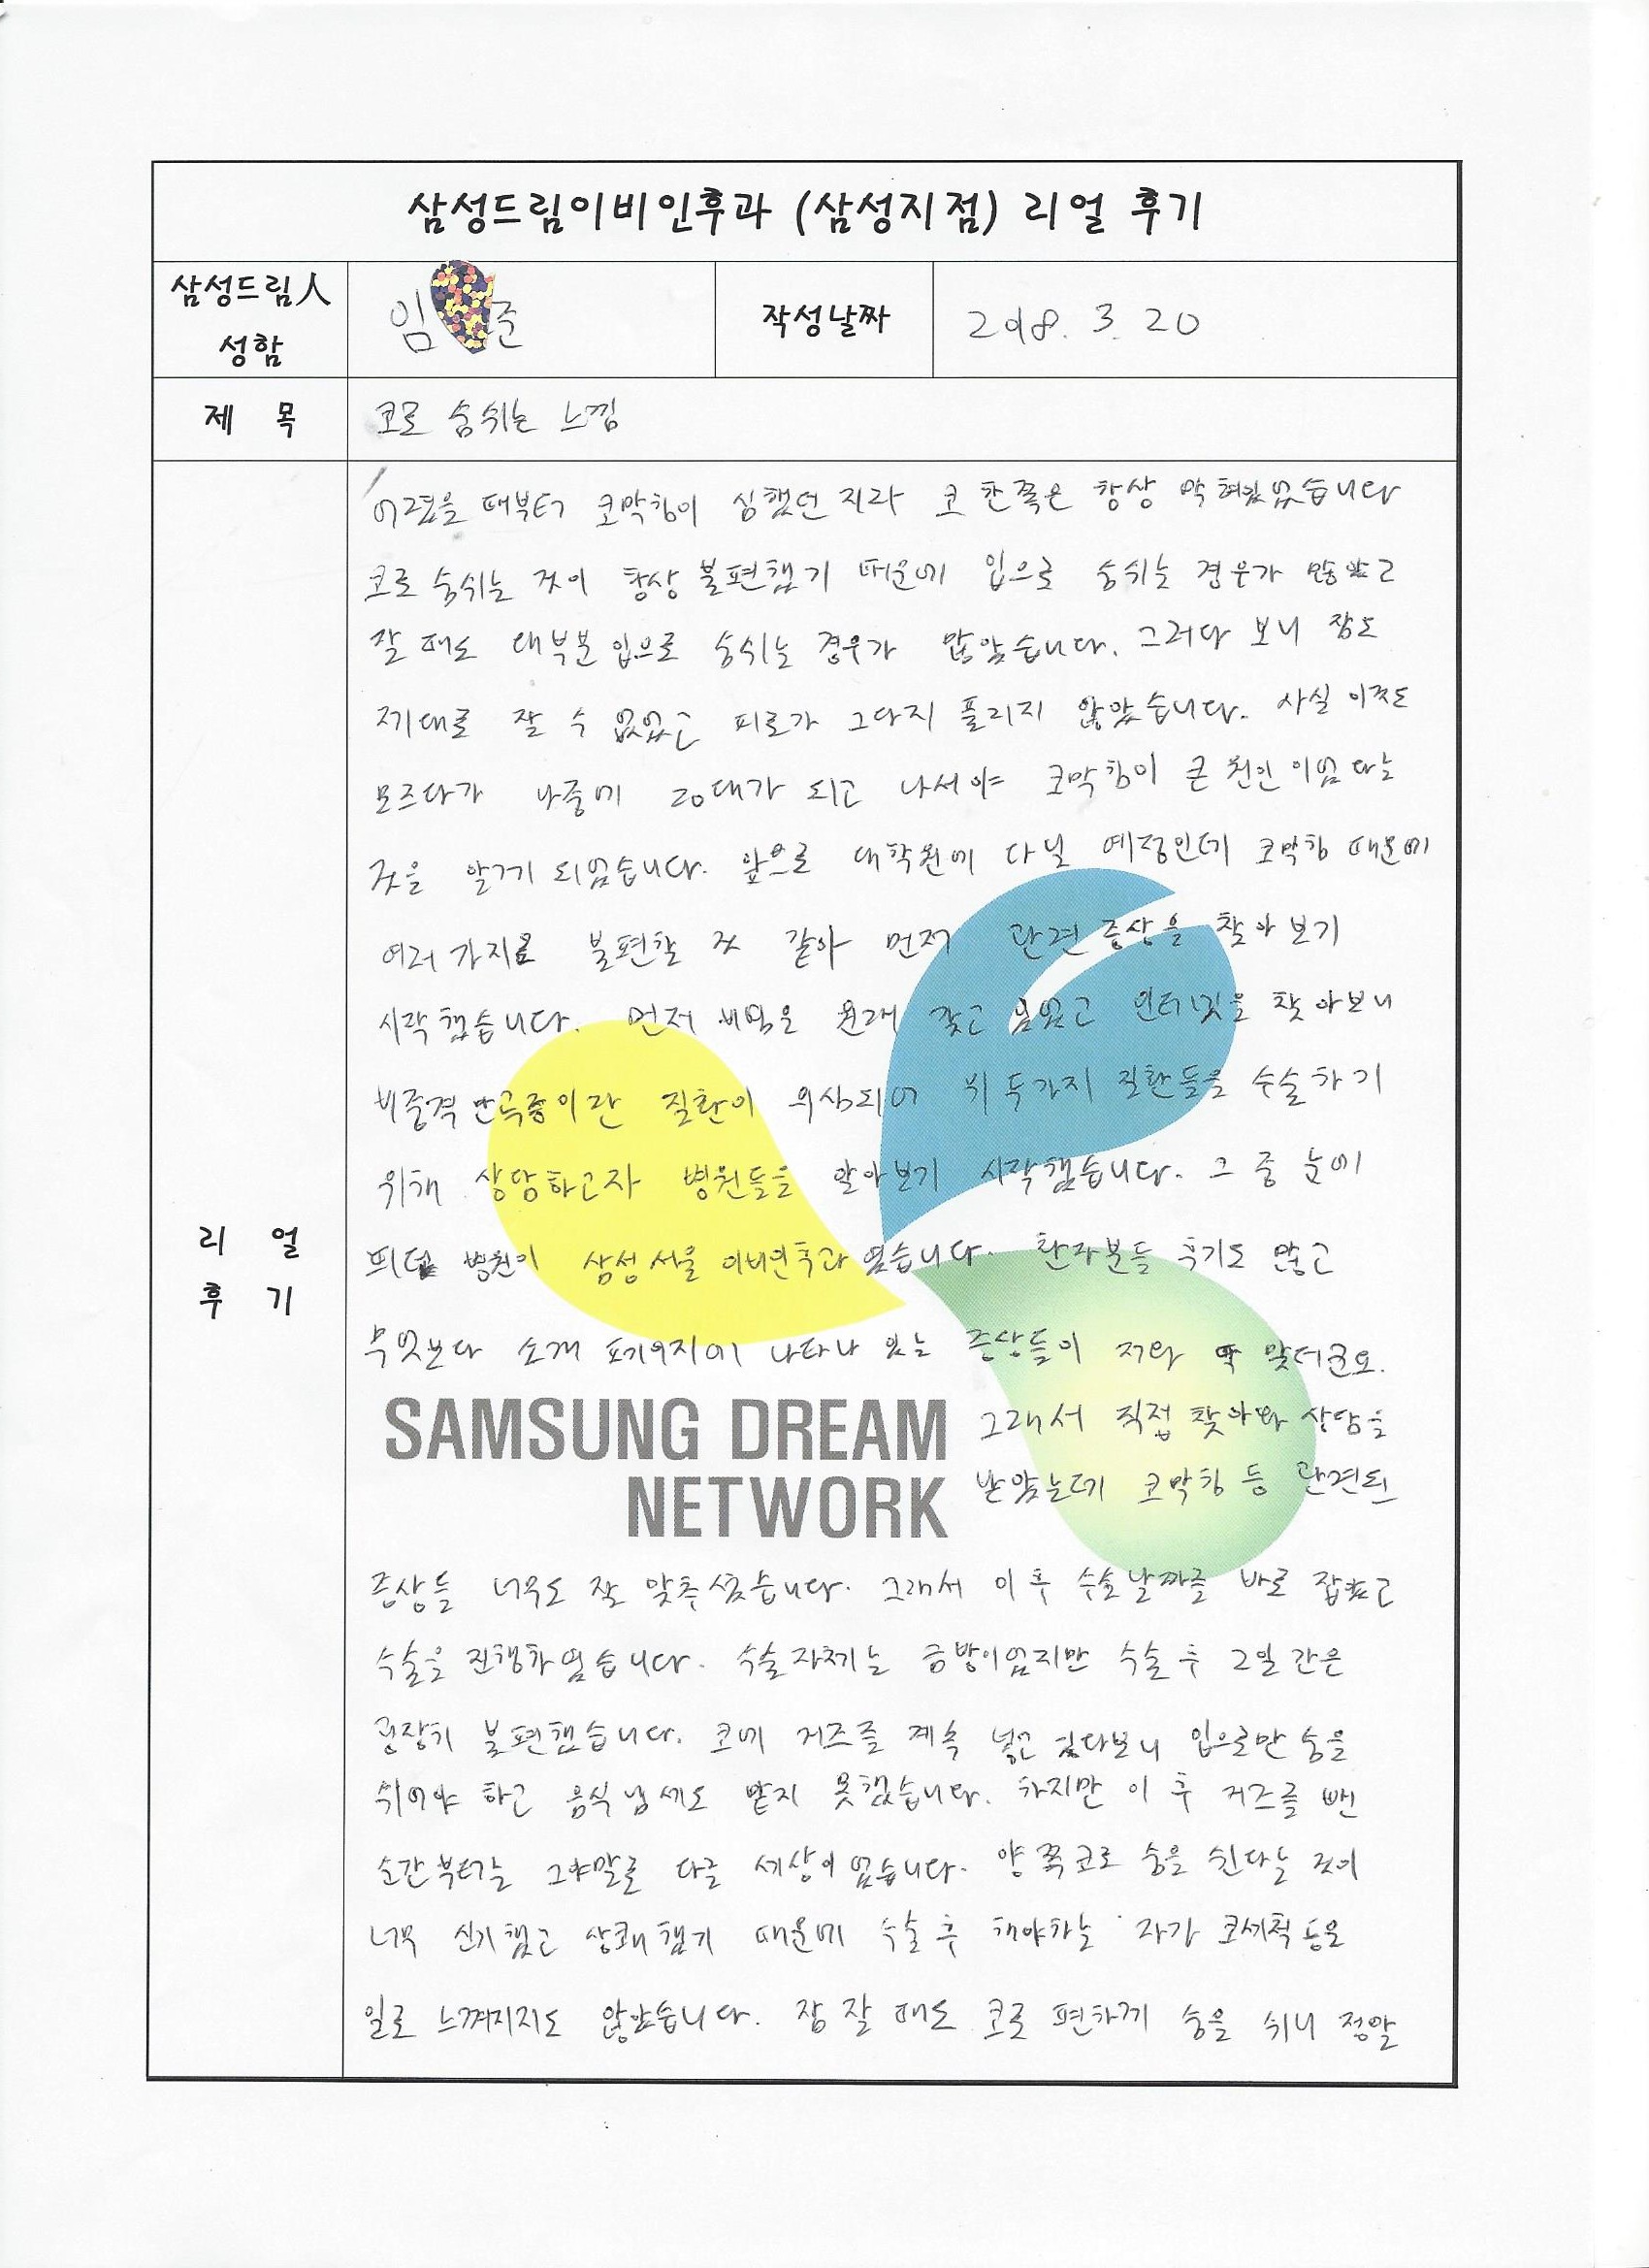 삼성드림이비인후과 (삼성지점) 리얼 후기
삼성드림人 성함
임 준
작성날짜
2018. 3. 20
제 목
코로 숨쉬는 느낌
리 얼 후 기
어렸을 때부터 코막힘이 심했던지라 코 한쪽은 항상 막혀있었습니다
코로 숨쉬는 것이 항상 불편했기 때문에 입으로 숨쉬는 경우가 많았고
잘 때도 대부분 입으로 숨쉬는 경우가 많았습니다. 그러다 보니 잠도
제대로 잘 수 없었고 피로가 그다지 풀리지 않았습니다. 사실 이것도
모르다가 나중에 20대가 되고 나서야 코막힘이 큰 원인이었다는
것을 알게 되었습니다. 앞으로 대학원에 다닐 예정인데 코막힘 때문에
여러 가지로 불편할 것 같아 먼저 관련 증상을 찾아보기
시작했습니다. 먼저 비염은 원래 갖고 있었고 인터넷을 찾아보니
비중격만곡증이란 질환이 의심되어 위 두가지 질환들을 수술하기
위해 상담하고자 병원들을 알아보기 시작했습니다. 그 중 눈에
띄던 병원이 삼성서울 이비인후과였습니다. 환자분들 후기도 많고
무엇보다 소개 페이지에 나타나 있는 증상들이 저와 딱 맞더군요.
SAMSUNG DREAM NETWORK
그래서 직접 찾아와 상담을
받았는데 코막힘 등 관련된
증상들 너무도 잘 맞추셨습니다. 그래서 이후 수술날짜를 바로 잡았고
수술을 진행하였습니다. 수술자체는 금방이었지만 수술 후 2일간은
굉장히 불편했습니다. 코에 거즈를 계속 넣고 있다보니 입으로만 숨을
쉬어야 하고 음식냄새도 맡지 못했습니다. 하지만 이후 거즈를 뺀
순간부터는 그야말로 다른 세상이었습니다. 양쪽코로 숨을 쉰다는 것이
너무 신기했고 상쾌했기 때문에 수술 후 해야하는 자가 코세척 등은
일로 느껴지지도 않았습니다. 잠 잘 때도 코로 편하게 숨을 쉬니 정말